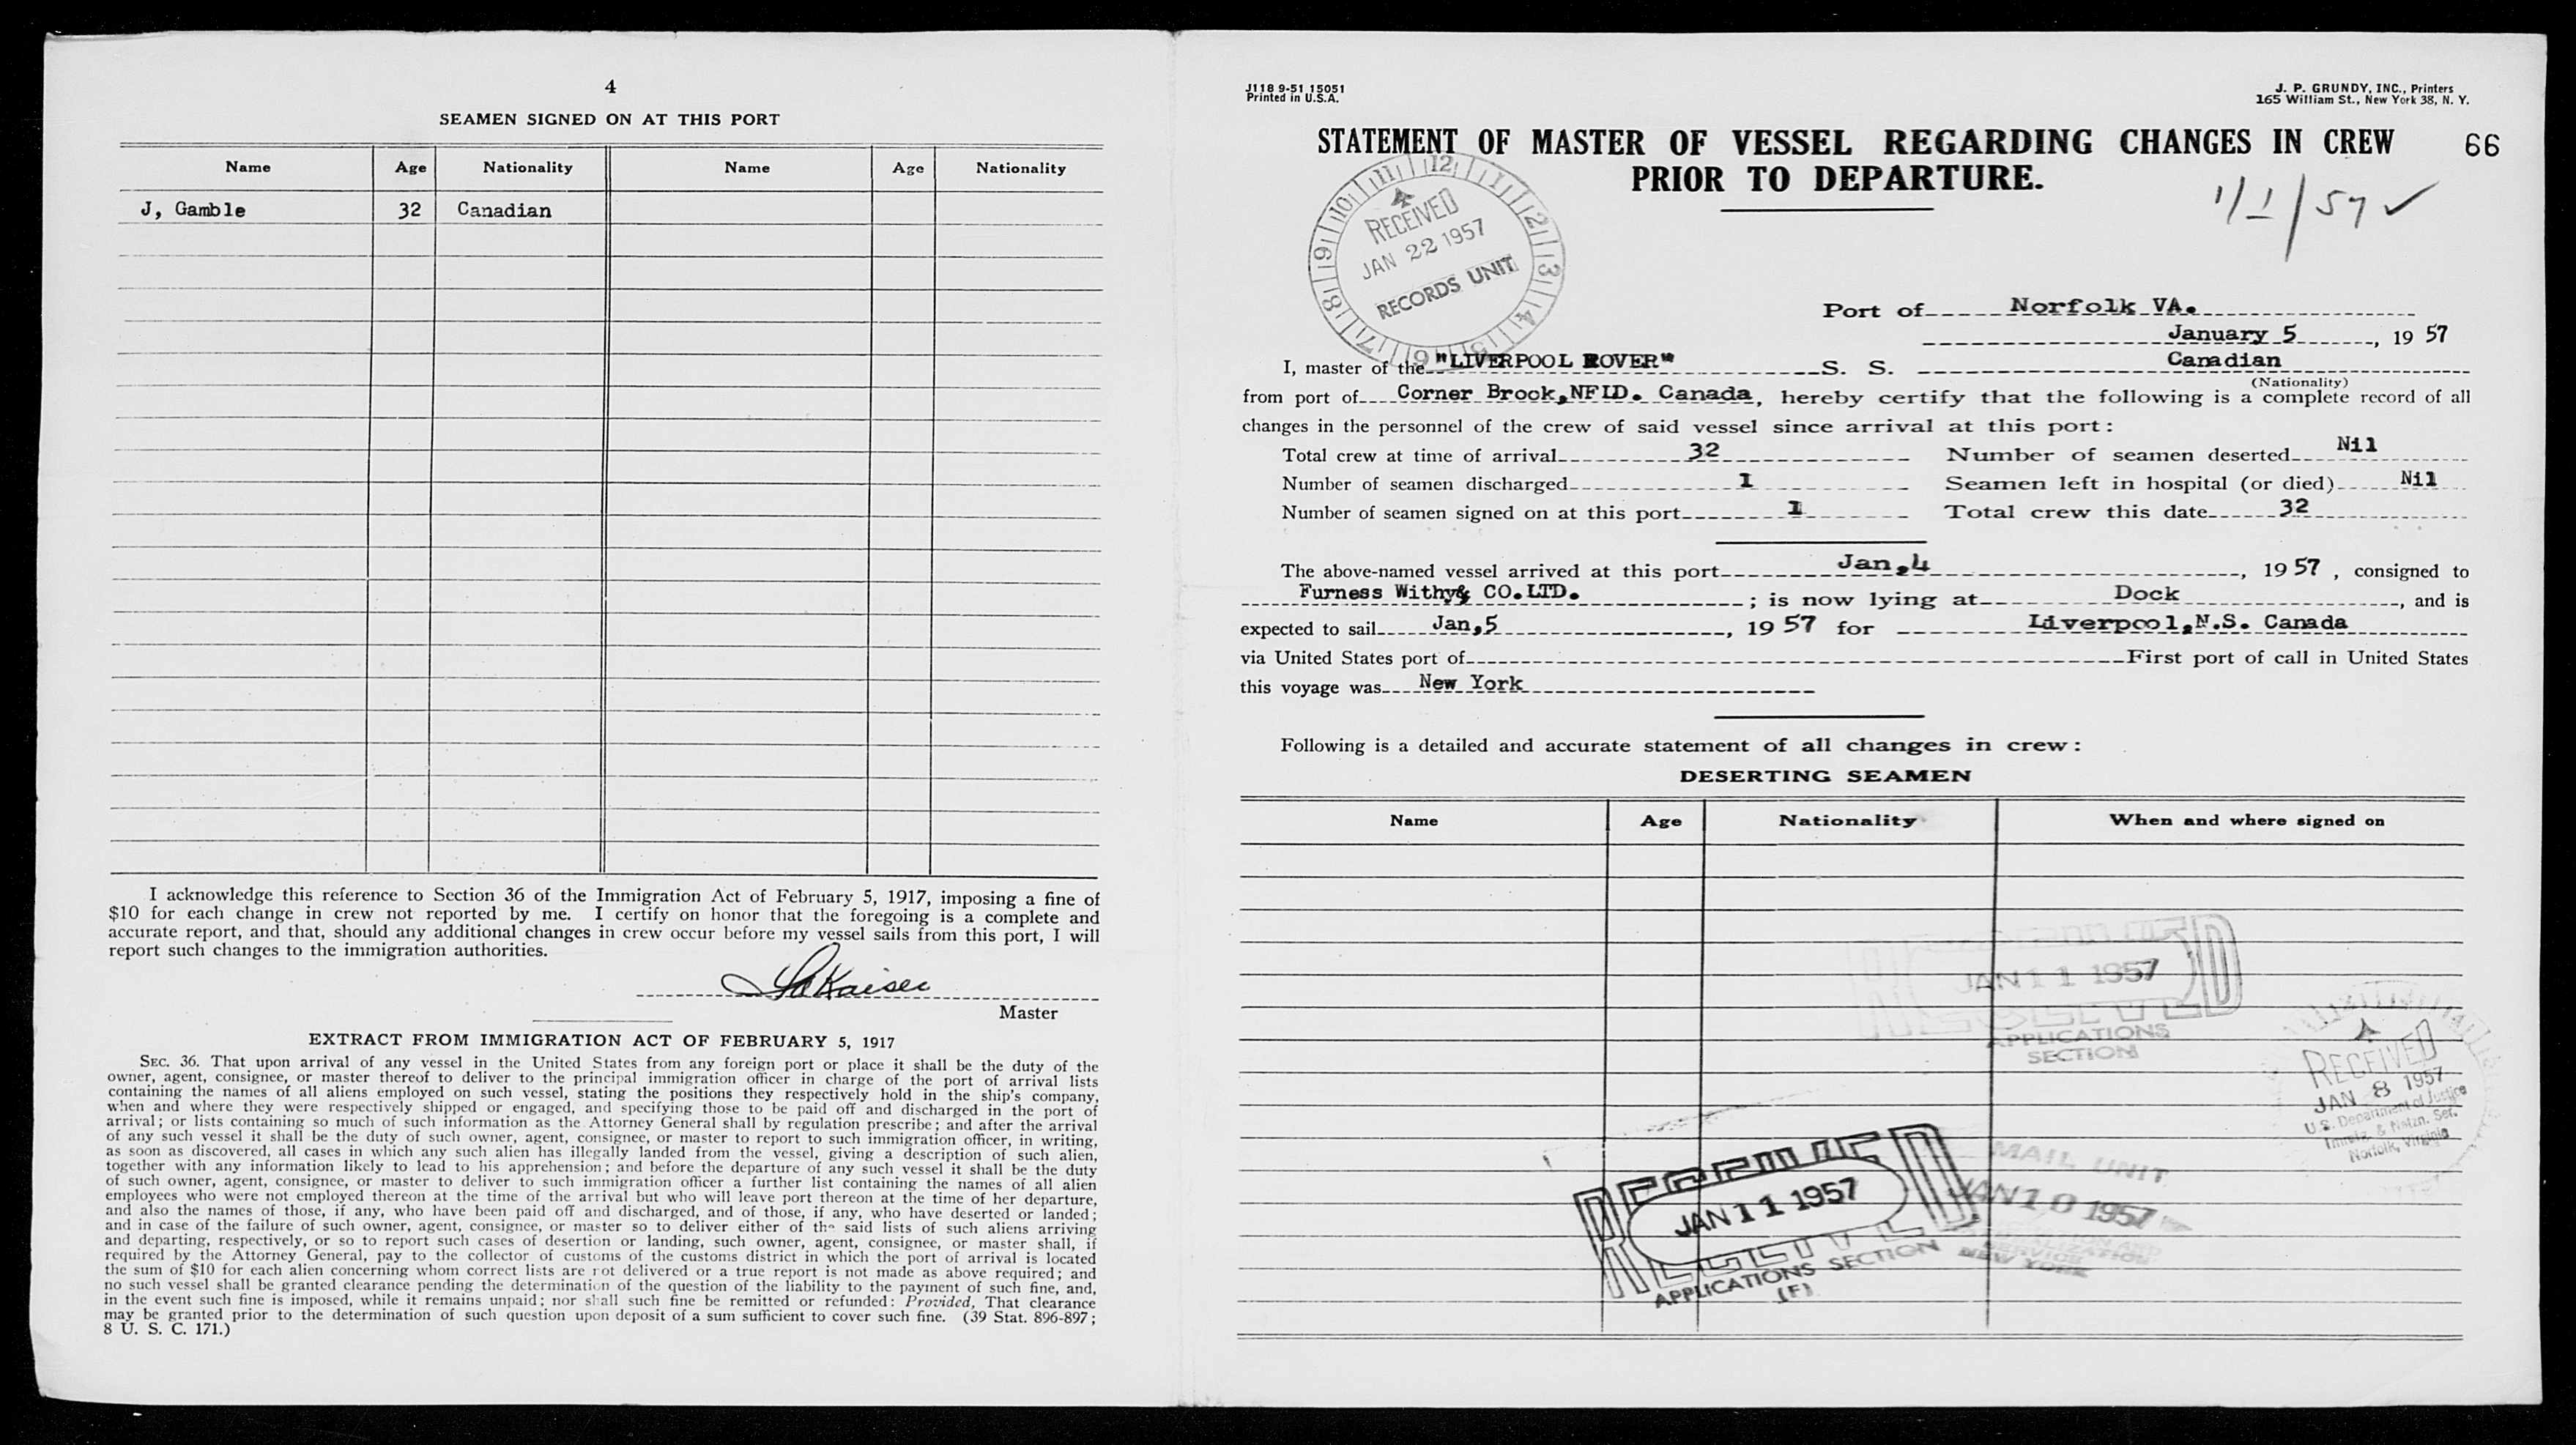 4
SEAMEN SIGNED ON AT THIS PORT
Name Age Nationality Name Age Nationality
J, Gamble 32 Canadian
I acknowledge this reference to Section 36 of the Immigration Act of February 5, 1917, imposing a fine of
$10 for each change in crew not reported by me. I certify on honor that the foregoing is a complete and
accurate report, and that, should any additional changes in crew occur before my vessel sails from this port, I will
report such changes to the immigration authorities.
Kaiser
Master
EXTRACT FROM IMMIGRATION ACT OF FEBRUARY 5, 1917
SEC. 36. That upon arrival of any vessel in the United States from any foreign port or place it shall be the duty of the
owner, agent, consignee, or master thereof to deliver to the principal immigration officer in charge of the port of arrival lists
containing the names of all aliens employed on such vessel, stating the positions they respectively hold in the ship's company,
when and where they were respectively shipped or engaged, and specifying those to be paid off and discharged in the port of
arrival; or lists containing so much of such information as the Attorney General shall by regulation prescribe; and after the arrival
of any such vessel it shall be the duty of such owner, agent, consignee, or master to report to such immigration officer, in writing,
as soon as discovered, all cases in which any such alien has illegally landed from the vessel, giving a description of such alien,
together with any information likely to lead to his apprehension; and before the departure of any such vessel it shall be the duty
of such owner, agent, consignee, or master to deliver to such immigration officer a further list containing the names of all alien
employees who were not employed thereon at the time of the arrival but who will leave port thereon at the time of her departure,
and also the names of those, if any, who have been paid off and discharged, and of those, if any, who have deserted or landed;
and in case of the failure of such owner, agent, consignee, or master so to deliver either of the said lists of such aliens arriving
and departing, respectively, or so to report such cases of desertion or landing, such owner, agent, consignee, or master shall, if
required by the Attorney General, pay to the collector of customs of the customs district in which the port of arrival is located
the sum of $10 for each alien concerning whom correct lists are not delivered or a true report is not made as above required; and
no such vessel shall be granted clearance pending the determination of the question of the liability to the payment of such fine, and,
in the event such fine is imposed, while it remains unpaid; nor shall such fine be remitted or refunded: Provided, That clearance
may be granted prior to the determination of such question upon deposit of a sum sufficient to cover such fine. (39 Stat. 896-897;
8 U. S. C. 171.)
J118 9-51 15051
Printed in U.S.A.
J. P. GRUNDY, INC., Printers
165 William St., New York 38, N. Y.
STATEMENT OF MASTER OF VESSEL REGARDING CHANGES IN CREW
PRIOR TO DEPARTURE.
66
1/1/57 ✓
12 1 2 3 4 5 6 7 8 9 10 11
RECEIVED
JAN 22 1957
RECORDS UNIT
Port of Norfolk VA.
January 5, 1957
I, master of the "LIVERPOOL ROVER" S. S. Canadian
(Nationality)
from port of Corner Brook,NFLD. Canada, hereby certify that the following is a complete record of all
changes in the personnel of the crew of said vessel since arrival at this port:
Total crew at time of arrival 32 Number of seamen deserted Nil
Number of seamen discharged 1 Seamen left in hospital (or died) Nil
Number of seamen signed on at this port 1 Total crew this date 32
The above-named vessel arrived at this port Jan,4, 1957, consigned to
Furness Withy& CO.LTD.; is now lying at Dock, and is
expected to sail Jan,5, 1957 for Liverpool,N.S. Canada
via United States port of First port of call in United States
this voyage was New York
Following is a detailed and accurate statement of all changes in crew:
DESERTING SEAMEN
Name Age Nationality When and where signed on
JAN 11 1957
RECEIVED
APPLICATIONS
SECTION
RECEIVED
JAN 8 1957
U.S. Department of Justice
Immig. & Natzn. Ser.
Norfolk, Virginia
MAIL UNIT
JAN 10 1957
NEW YORK
RECEIVED
JAN 11 1957
RECEIVED
APPLICATIONS SECTION
(F)